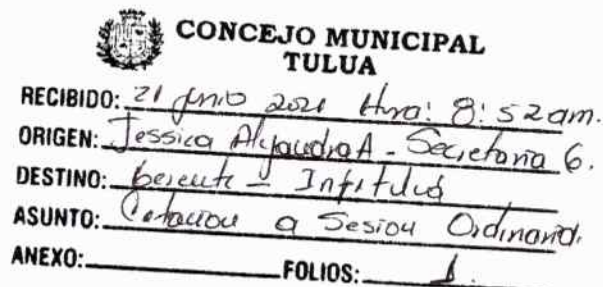 CONCEJO MUNICIPAL
TULUA
RECIBIDO: 21 junio 2021 Hora: 8:52am.
ORIGEN: Jessica Alejandra A - Secretaria G.
DESTINO: Gerente - Infitulua
ASUNTO: Citacion a Sesion Ordinaria.
ANEXO: FOLIOS: 1.